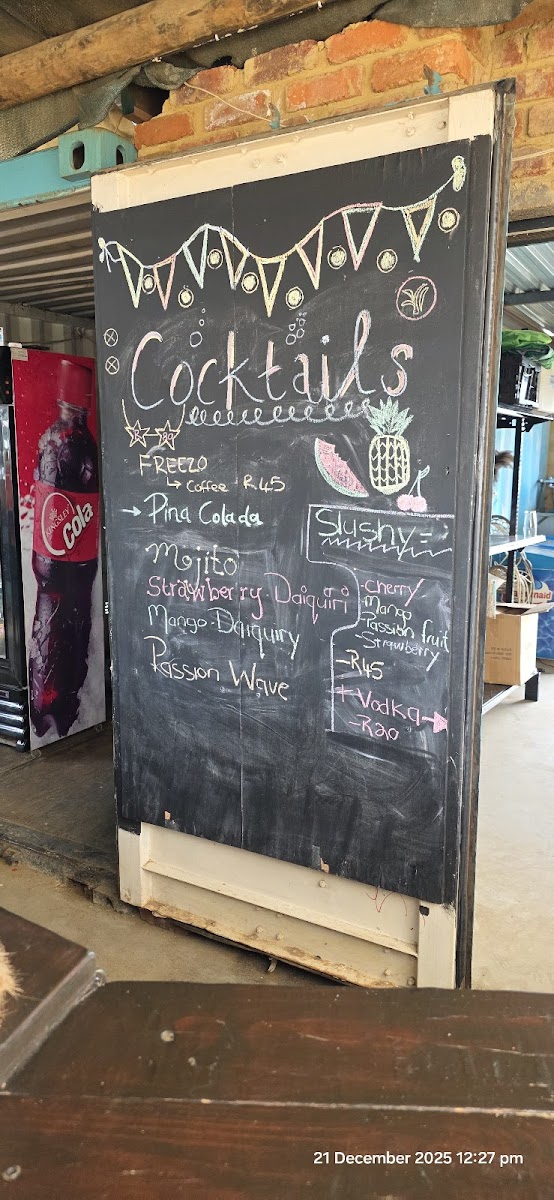 Cocktails
FREEZO
Coffee R45
Pina Colada
Mojito
Strawberry Daiquiri
Mango-Daiquiry
Passion Wave
Slushy
-Cherry
-Mango
-Passion fruit
-Strawberry
-R45
+ Vodka
-R20
KINGSLEY
Cola
21 December 2025 12:27 pm